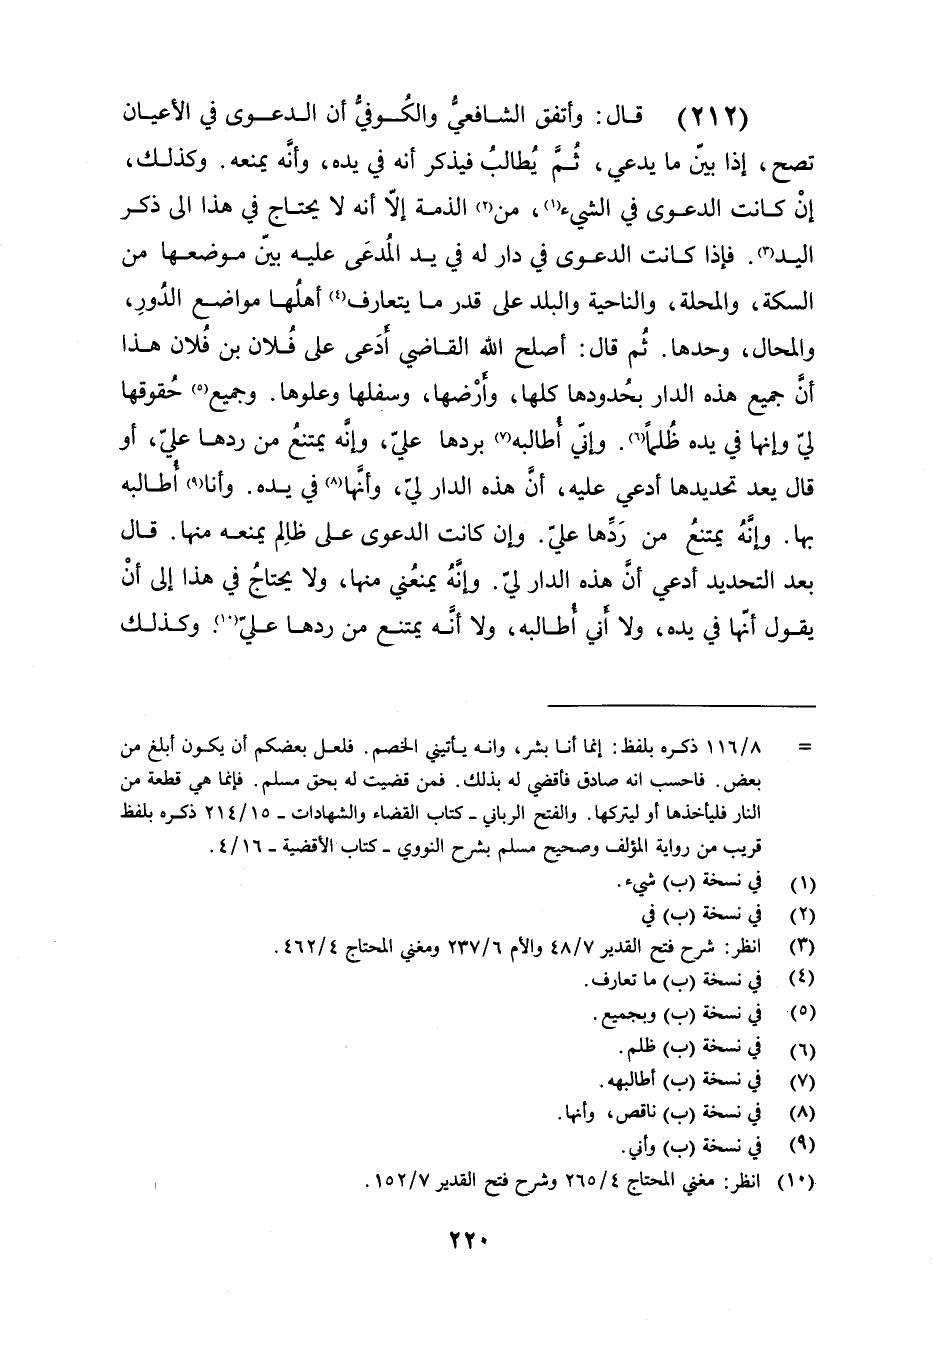 (٢١٢) قال: وأتفق الشافعيُّ والكُوفيُّ أن الدعوى في الأعيان
تصح، إذا بيّن ما يدعي، ثُمَّ يُطالبُ فيذكر أنه في يده، وأنَّه يمنعه. وكذلك،
إنْ كانت الدعوى في الشيء(١)، من(٢) الذمة إلاّ أنه لا يحتاج في هذا الى ذكر
اليد(٣). فإذا كانت الدعوى في دار له في يد المُدعَى عليه بيّن موضعها من
السكة، والمحلة، والناحية والبلد على قدر ما يتعارف(٤) أهلُها مواضع الدُورِ،
والمحال، وحدها. ثُم قال: أصلح الله القاضي أَدَعى على فُلان بن فُلان هذا
أنَّ جميع هذه الدار بحُدودها كلها، وأَرْضها، وسفلها وعلوها. وجميع(٥) حُقوقها
ليّ وإنها في يده ظُلماً(٦). وإنّي أُطالبه(٧) بردها عليّ، وإنَّه يمتنعُ من ردها عليّ، أو
قال يعد تحديدها أدعي عليه، أنَّ هذه الدار ليّ، وأنَّها(٨) في يده. وأنا(٩) أُطالبه
بها. وإنَّهُ يمتنعُ من رَدِّها عليّ. وإن كانت الدعوى على ظالِم يمنعه منها. قال
بعد التحديد أدعي أنَّ هذه الدار ليّ. وإنَّهُ يمنعُني منها، ولا يحتاجُ في هذا إلى أنْ
يقول أنّها في يده، ولا أَني أُطالبه، ولا أنَّه يمتنع من ردها عليّ(١٠). وكذلك
= ١١٦/٨ ذكره بلفظ: إنما أنا بشر، وانه يأتيني الخصم. فلعل بعضكم أن يكون أبلغ من
بعض. فاحسب انه صادق فأقضي له بذلك. فمن قضيت له بحق مسلم. فإنما هي قطعة من
النار فليأخذها أو ليتركها. والفتح الرباني ـ كتاب القضاء والشهادات ـ ٢١٤/١٥ ذكره بلفظ
قريب من رواية المؤلف وصحيح مسلم بشرح النووي ـ كتاب الأقضية ـ ٤/١٦.
(١) في نسخة (ب) شيء.
(٢) في نسخة (ب) في
(٣) انظر: شرح فتح القدير ٤٨/٧ والأم ٢٣٧/٦ ومغني المحتاج ٤٦٢/٤.
(٤) في نسخة (ب) ما تعارف.
(٥) في نسخة (ب) وبجميع.
(٦) في نسخة (ب) ظلم.
(٧) في نسخة (ب) أطالبهه.
(٨) في نسخة (ب) ناقص، وأنها.
(٩) في نسخة (ب) وأني.
(١٠) انظر: مغني المحتاج ٢٦٥/٤ وشرح فتح القدير ١٥٢/٧.
٢٢٠